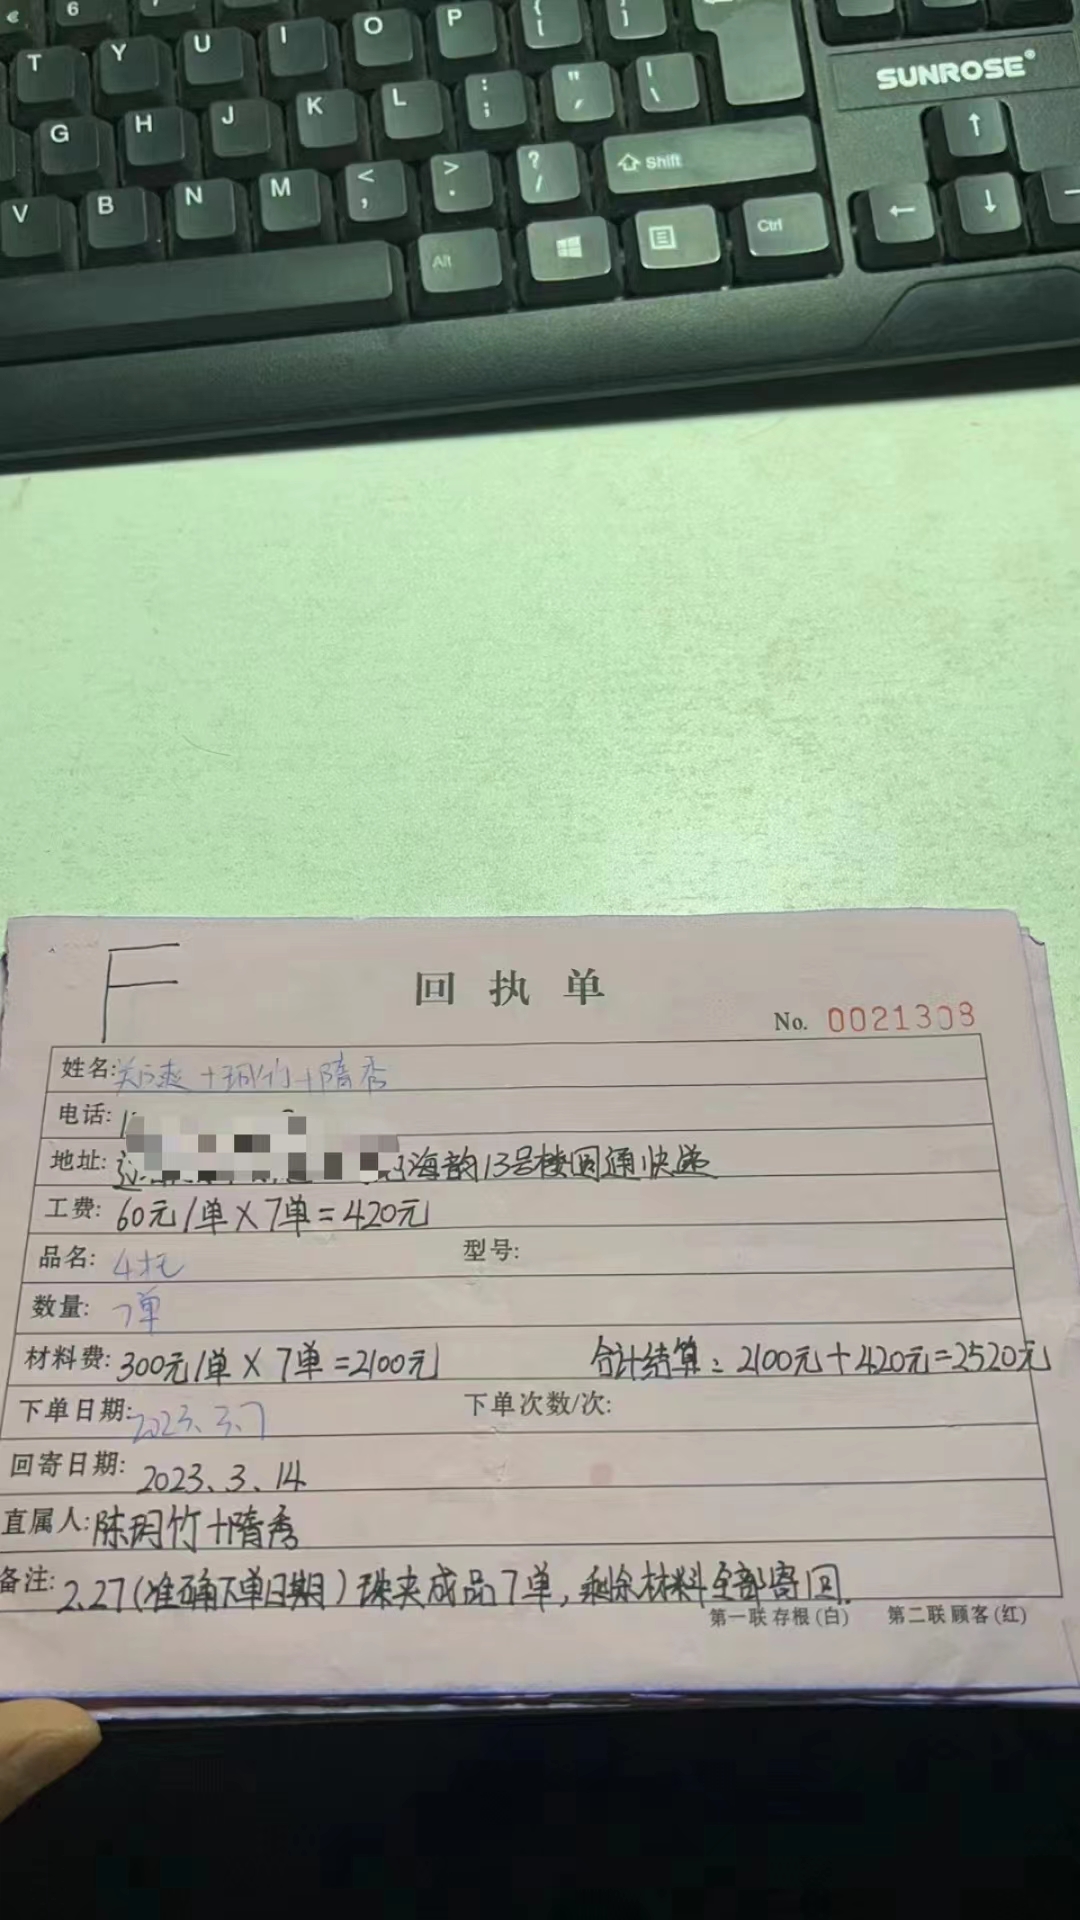 € 6
T Y U I O P { [ } ]
SUNROSE®
G H J K L : ; " , | \
V B N M < , > . ? / Shift
Alt Ctrl
F
回执单
No. 0021308
姓名: 关爽+玥竹+隋秀
电话: 1
地址: 海韵13号楼圆通快递
工费: 60元/单×7单=420元
品名: 4托 型号:
数量: 7单
材料费: 300元/单×7单=2100元 合计结算: 2100元+420元=2520元
下单日期: 2023.3.7 下单次数/次:
回寄日期: 2023.3.14
直属人: 陈玥竹+隋秀
备注: 2.27(准确下单日期)珠夹成品7单,剩余材料全部寄回.
第一联 存根(白) 第二联 顾客(红)